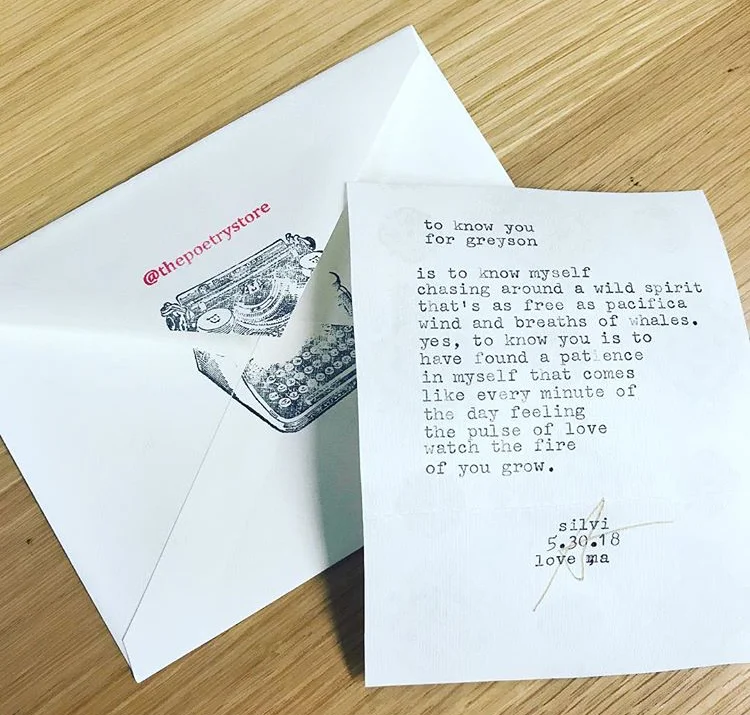 @thepoetrystore
to know you
for greyson
is to know myself
chasing around a wild spirit
that's as free as pacifica
wind and breaths of whales.
yes, to know you is to
have found a patience
in myself that comes
like every minute of
the day feeling
the pulse of love
watch the fire
of you grow.
silvi
5.30.18
love ma